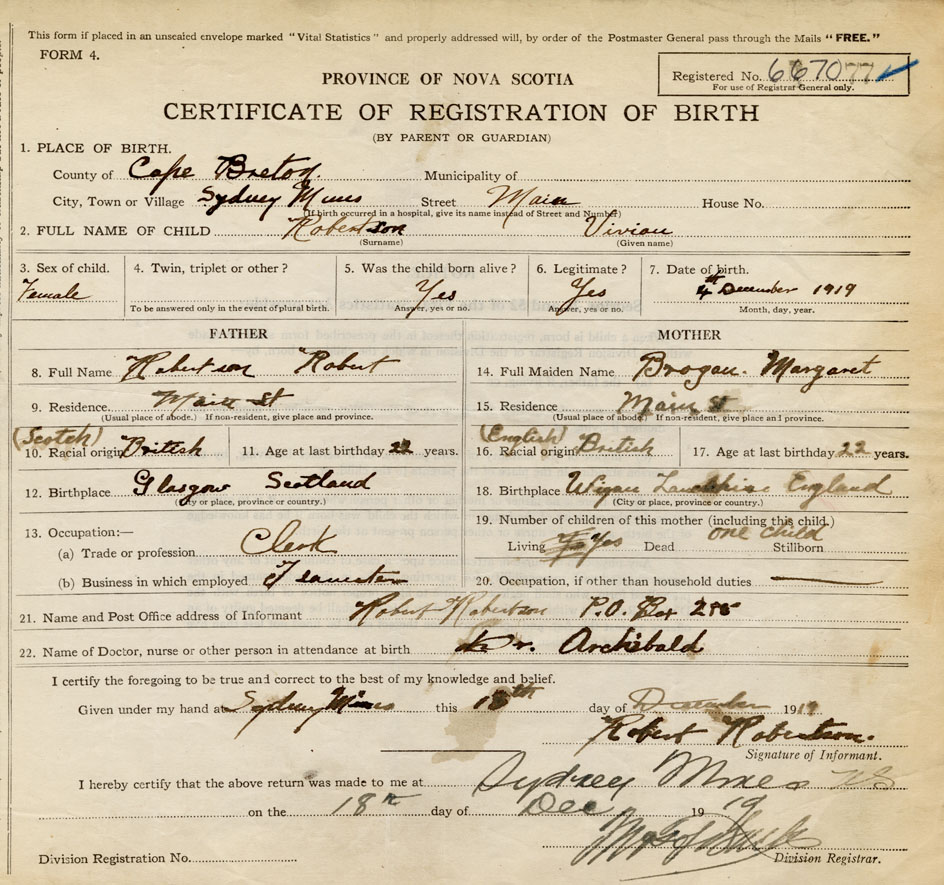 This form if placed in an unsealed envelope marked "Vital Statistics" and properly addressed will, by order of the Postmaster General pass through the Mails "FREE."
FORM 4.
Registered No. 667077
For use of Registrar General only.
PROVINCE OF NOVA SCOTIA
CERTIFICATE OF REGISTRATION OF BIRTH
(BY PARENT OR GUARDIAN)
1. PLACE OF BIRTH.
County of Cape Breton Municipality of
City, Town or Village Sydney Mines Street Main House No.
(If birth occurred in a hospital, give its name instead of Street and Number)
2. FULL NAME OF CHILD Robertson Vivian
(Surname) (Given name)
3. Sex of child. 4. Twin, triplet or other? 5. Was the child born alive? 6. Legitimate? 7. Date of birth.
Female Yes Yes 4th December 1919
To be answered only in the event of plural birth. Answer, yes or no. Answer, yes or no. Month, day, year.
FATHER MOTHER
8. Full Name Robertson Robert 14. Full Maiden Name Brogan. Margaret
9. Residence Main St 15. Residence Main St
(Usual place of abode.) If non-resident, give place and province. (Usual place of abode.) If non-resident, give place and province.
(Scotch) (English)
10. Racial origin British 11. Age at last birthday 22 years. 16. Racial origin British 17. Age at last birthday 22 years.
12. Birthplace Glasgow Scotland 18. Birthplace Wigan England
(City or place, province or country.) (City or place, province or country.)
13. Occupation:— 19. Number of children of this mother (including this child.)
one child
(a) Trade or profession Clerk Living Yes Dead Stillborn
(b) Business in which employed 20. Occupation, if other than household duties
21. Name and Post Office address of Informant Robert Robertson P.O. Box
22. Name of Doctor, nurse or other person in attendance at birth Dr. Archibald
I certify the foregoing to be true and correct to the best of my knowledge and belief.
Given under my hand at Sydney Mines this 18th day of December 1919
Robert Robertson.
Signature of Informant.
I hereby certify that the above return was made to me at Sydney Mines NS
on the 18th day of Dec 1919
Division Registration No. Division Registrar.